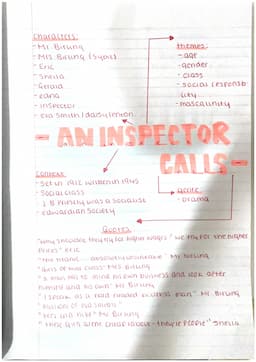 characters:
- Mr Birling
- Mrs Birling (Sybil)
- Eric
- Sheila
- Gerald
- Edna
- Inspector
- Eva Smith / daisy renton.
themes:
- age
- gender
- class
- social responsibility
- masculinity
- AN INSPECTOR
CALLS -
Context
- Set in 1912 written in 1945
- Social class
- J.B Priestly was a socialist
- edwardian society
genre:
- Drama
Quotes
"Why shouldn't they try for higher wages? We try for the higher
prices" Eric
absolutely unsinkable" Mr birling
"Girls of that class" Mrs Birling
"a man has to mind his own business and look after
himself and his own" Mr Birling
"I speak as a hard headed business man" Mr Birling
"
" Mr Birling
"these girls aren't cheap labour - they're people" Sheila